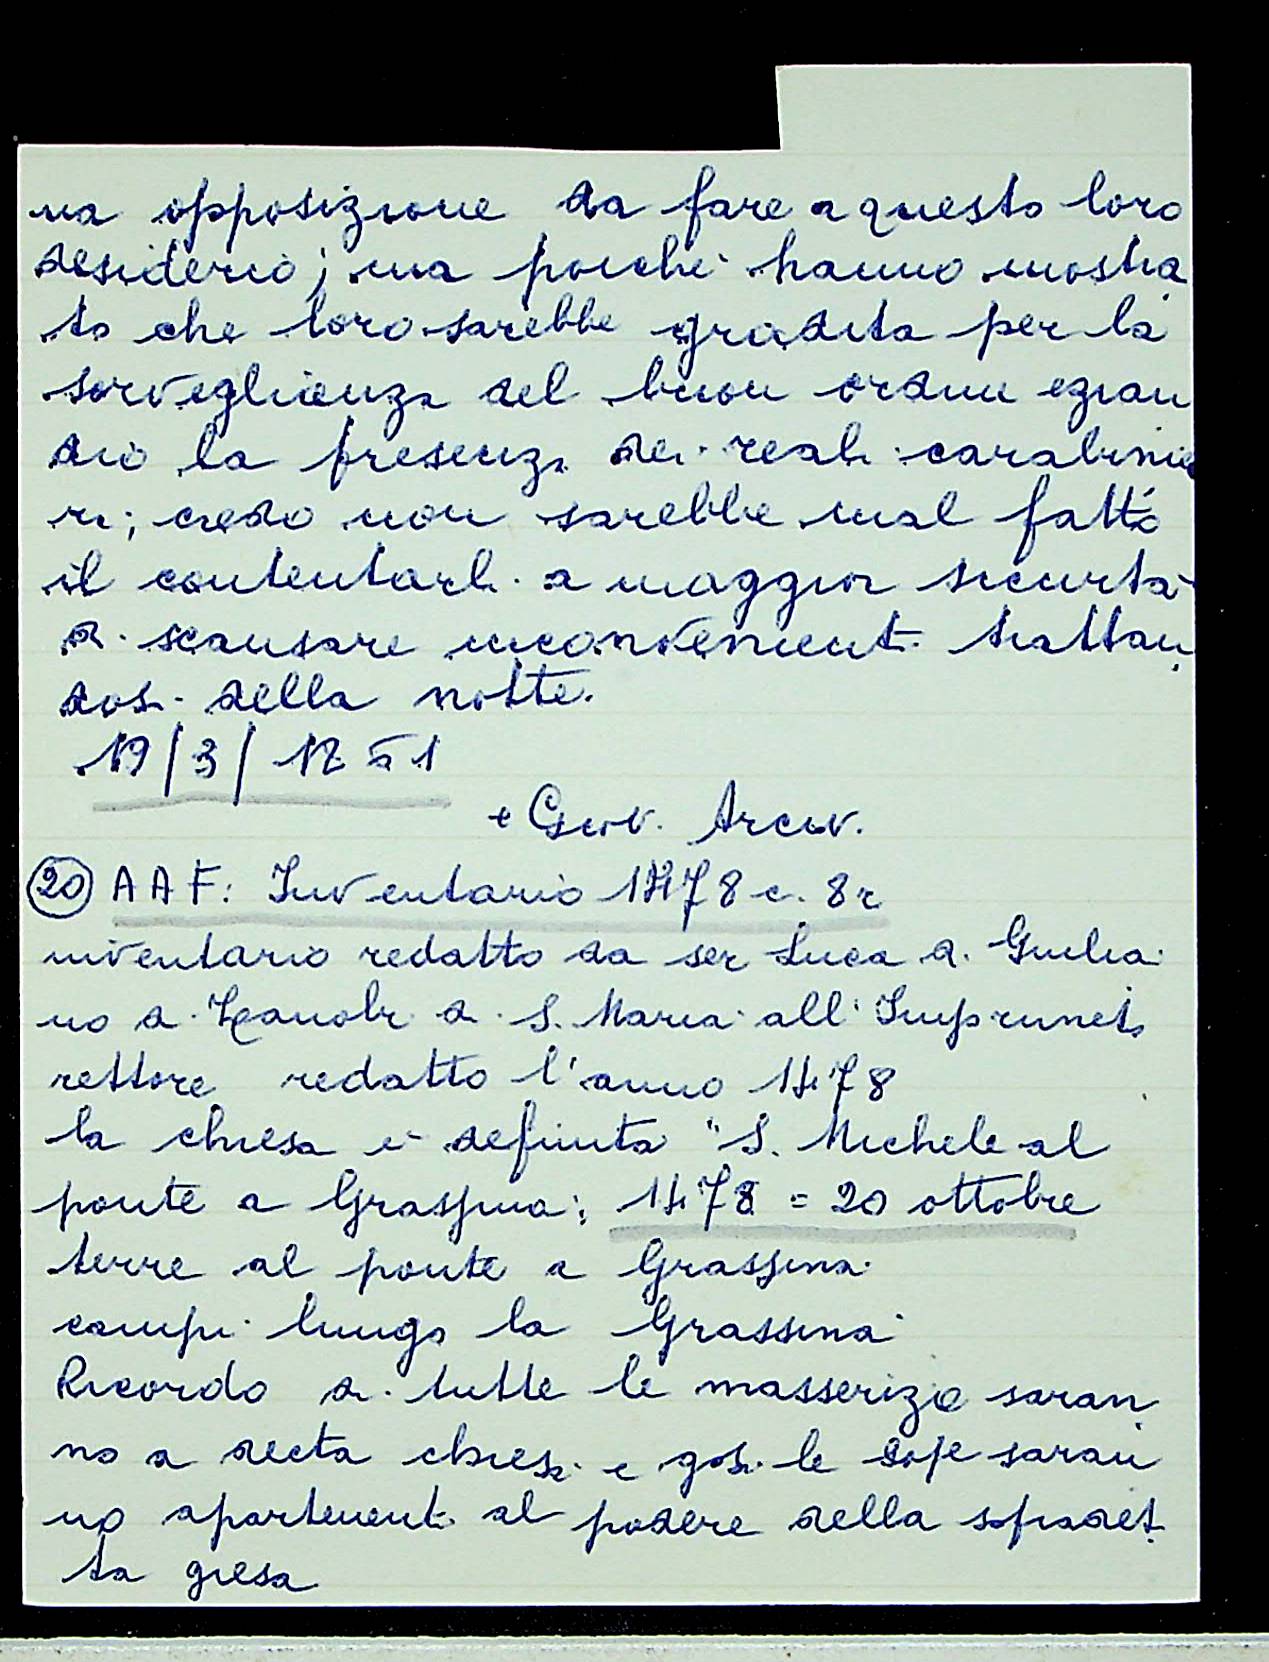 na opposizione da fare a questo loro
desiderio; ma poiche hanno mostra
to che loro sarebbe gradita per la
sorveglienza del buon ordine ezian
dio la presenza dei reali carabinie
ri; credo non sarebbe mal fatto
il contentarli a maggior sicurtà
di scansare inconvenienti trattan
dosi della notte.
19/3/1851
+ Giov. Arciv.
20 AAF: Inventario 1478 c. 8r
inventario redatto da ser Luca di Giulia
no di Zanobi di S. Maria all'Impruneta
rettore redatto l'anno 1478
la chiesa è definita "S. Michele al
ponte a Grassina; 1478 = 20 ottobre
terre al ponte a Grassina
campi lungo la Grassina
Ricordo di tutte le masserizie saran
no a decta chiesa e gosi le sope saran
no apartenenti al podere della sopradet
ta giesa